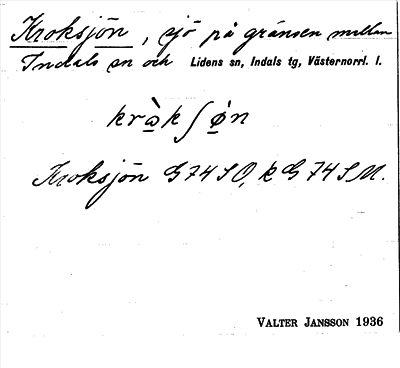 Kroksjön, sjö på gränsen mellan
Indals sn och Lidens sn, Indals tg, Västernorrl. l.
kràkʃøn
Kroksjön G 74 S O, k G 74 S M.
VALTER JANSSON 1936